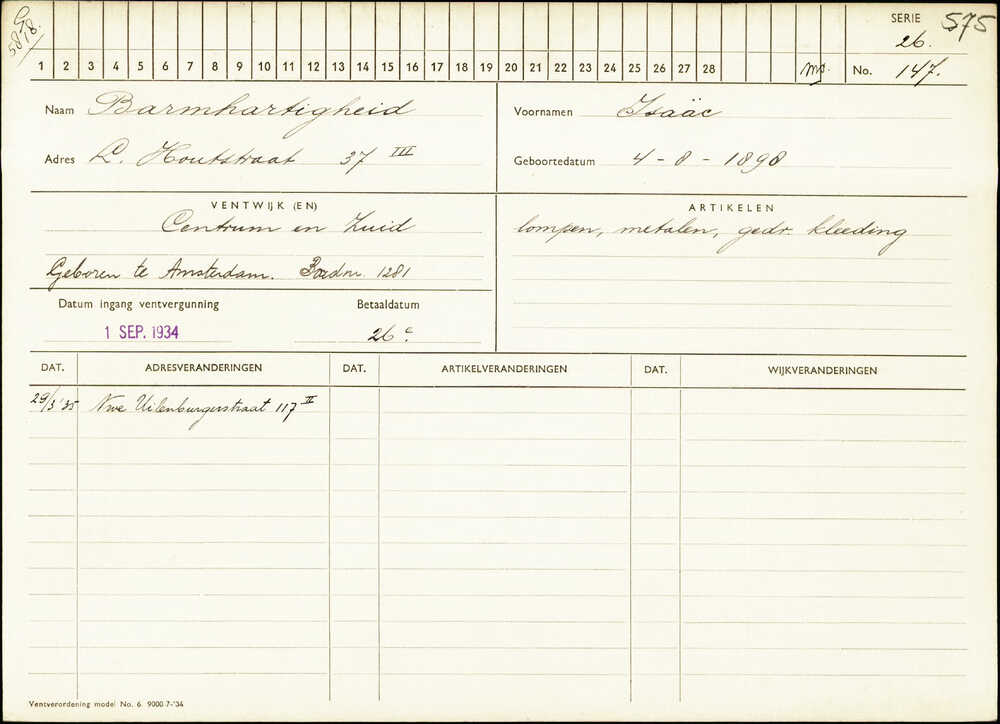 G 5878.
SERIE 575
26.
1 2 3 4 5 6 7 8 9 10 11 12 13 14 15 16 17 18 19 20 21 22 23 24 25 26 27 28 No. 147.
Naam Barmhartigheid Voornamen Isaäc
Adres L. Houtstraat 37 III Geboortedatum 4-8-1898
VENTWIJK (EN) ARTIKELEN
Centrum en Zuid lompen, metalen, gedr. kleeding
Geboren te Amsterdam. 1281
Datum ingang ventvergunning Betaaldatum
1 SEP. 1934 26e
DAT. ADRESVERANDERINGEN DAT. ARTIKELVERANDERINGEN DAT. WIJKVERANDERINGEN
29/3 '35 Nwe Uilenburgerstraat 117 II
Ventverordening model No. 6 9000-7-'34